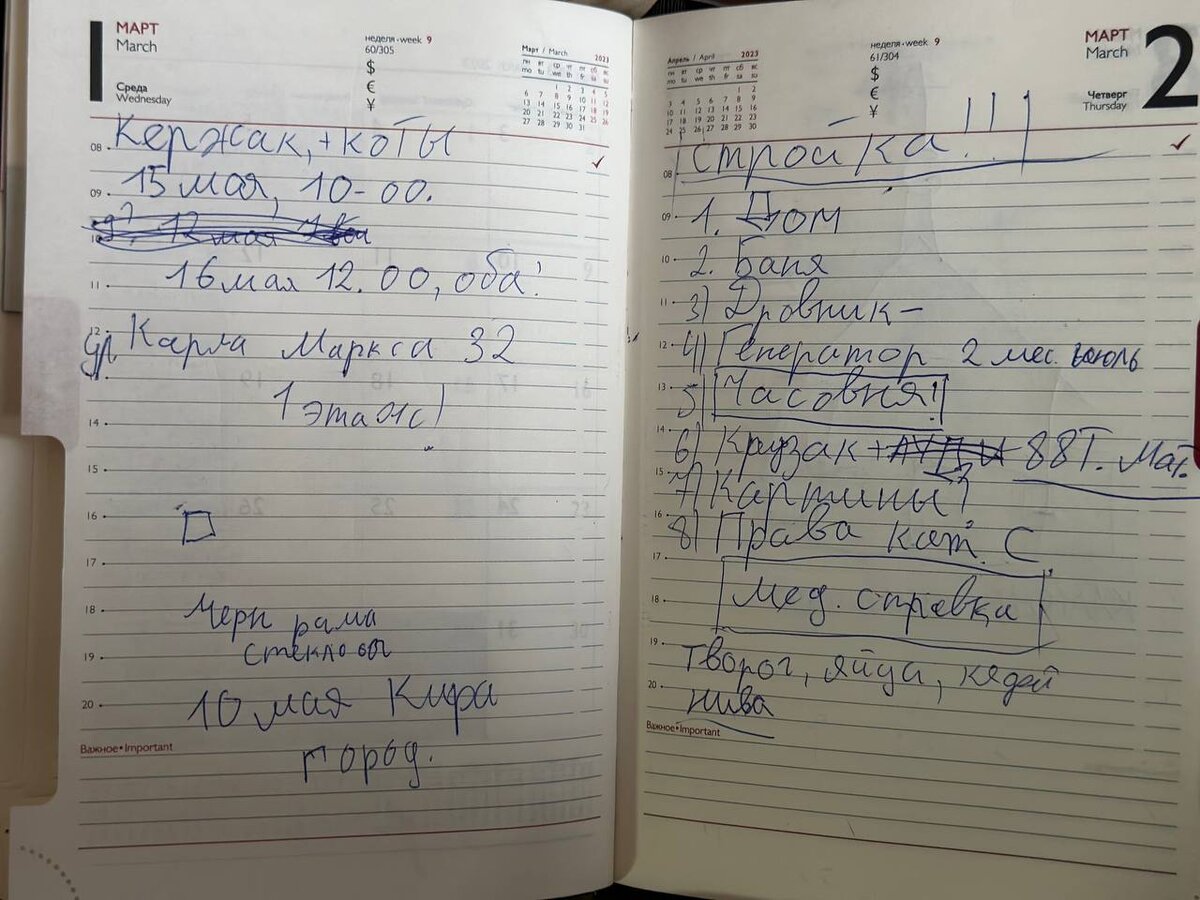 1
МАРТ
March
Среда
Wednesday
неделя•week 9
60/305
$
€
¥
Март / March 2023
пн вт ср чт пт сб вс
mo tu we th fr sa su
1 2 3 4 5
6 7 8 9 10 11 12
13 14 15 16 17 18 19
20 21 22 23 24 25 26
27 28 29 30 31
08 Кержак, + коты
09 15 мая, 10-00.
10 12 мая
11 16 мая 12.00, оба!
12 ул. Карла Маркса 32
1 этаж!
14
15
16
17
18 Черн рама
19 стекловы
20 10 мая Кира
Важное•Important
город.
МАРТ
March
2
Четверг
Thursday
неделя•week 9
61/304
$
€
¥
Апрель / April 2023
пн вт ср чт пт сб вс
mo tu we th fr sa su
1 2
3 4 5 6 7 8 9
10 11 12 13 14 15 16
17 18 19 20 21 22 23
24 25 26 27 28 29 30
08 Стройка!!!
09 1. Дом
10 2. Баня
11 3) Дровник –
12 4) Генератор 2 мес. июль
13 5) Часовня!
14 6) Крузак + АУДИ 88т. Мат.
15 7) Картины?
16 8) Права кат. С
17
18 Мед. справка
19 Творог, яйца,
20 Нива
Важное•Important